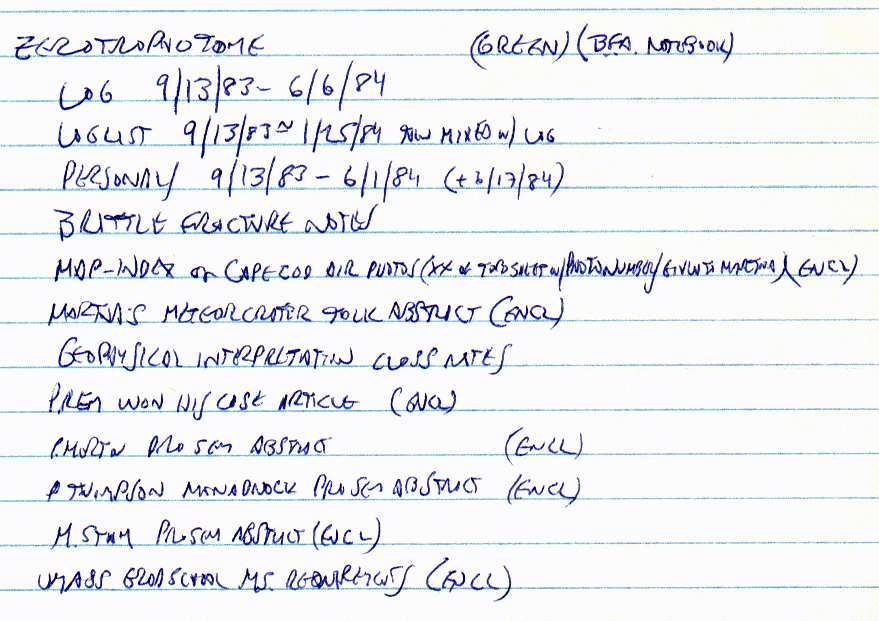 ZEROTROPHOTOME (GREEN) (BFA. NOTEBOOK)
LOG 9/13/83 - 6/6/84
LOGLIST 9/13/83 ~ 1/25/84 MIXED W/ LOG
PERSONAL 9/13/83 - 6/1/84 (+ 6/17/84)
BRITTLE FRACTURE NOTES
MAP-INDEX OF CAPE COD AIR PHOTOS (XX OF W/PHOTO NUMBER/ GIVEN TO MARTHA) (ENCL)
MARTHA'S METEOR CRATER TALK ABSTRACT (ENCL)
GEOPHYSICAL INTERPRETATION CLASS NOTES
PREM WON HIS CASE ARTICLE (ENCL)
P. MORTN PRO SEM ABSTRACT (ENCL)
P THOMPSON MONADNOCK PROSEM ABSTRACT (ENCL)
M. STAM PROSEM ABSTRACT (ENCL)
UMASS GRADSCHOOL MS. REQUIREMENTS (ENCL)